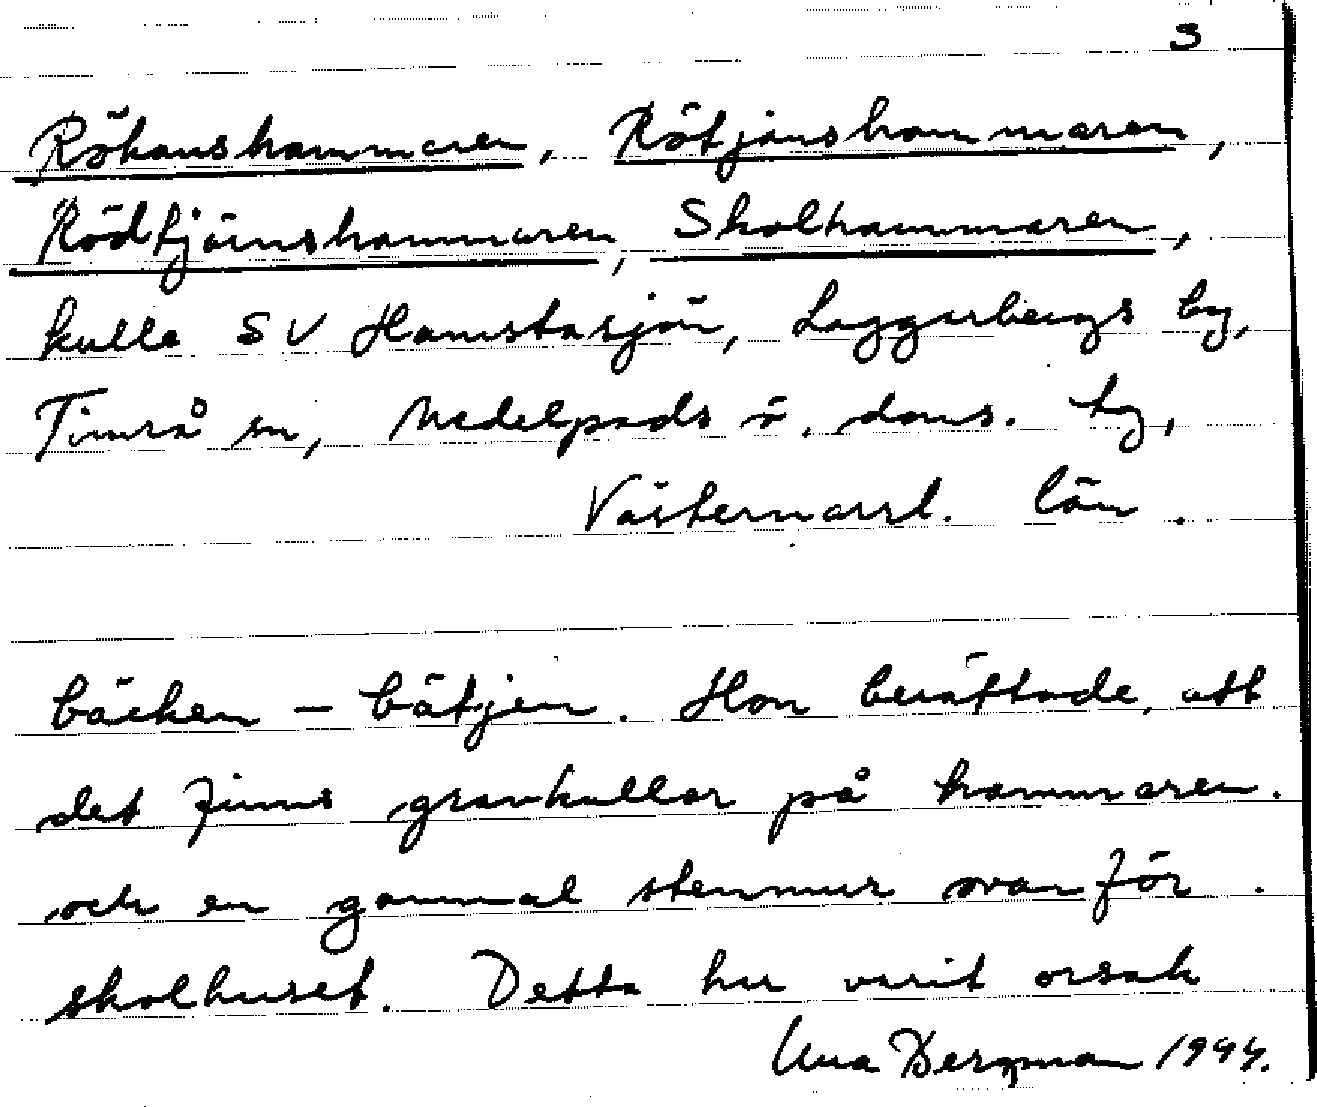 3
Rökanshammaren, Rötjänshammaren,
Rödtjärnshammaren, Skolhammaren,
kulle SV Hamstasjön, Laggarbergs by,
Timrå sn, Medelpads ö. doms. tg,
Västernorrl. län.
bäcken – bätjen. Hon berättade, att
det finns gravkullar på hammaren.
och en gammal stenmur ovanför.
skolhuset. Detta har varit orsak
Bergman 1944.